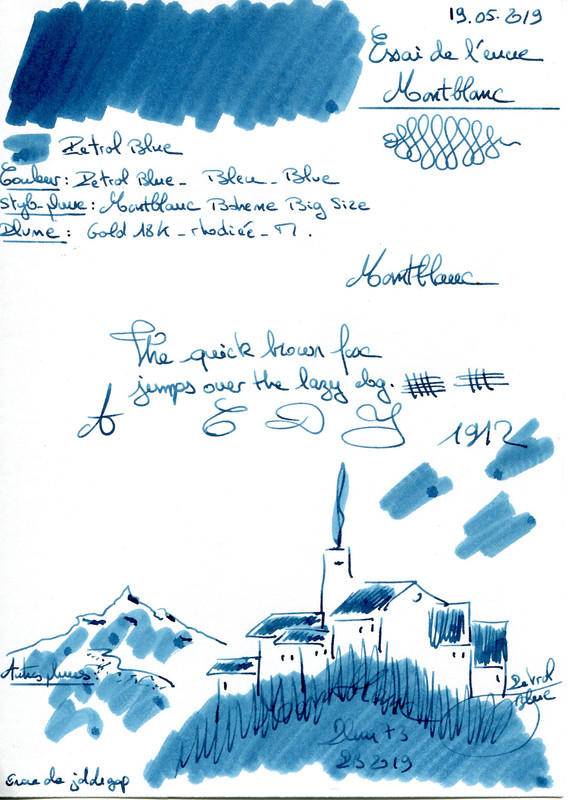 19.05.2019
Essai de l'encre
Montblanc
Petrol Blue
Couleur : Petrol Blue - Bleu - Blue
Stylo-plume : Montblanc Boheme Big Size
Plume : Gold 18K - rhodiée - M.
Montblanc
The quick brown fox
jumps over the lazy dog.
A E D Y 1912
Autres plumes
Petrol
Blue
2019